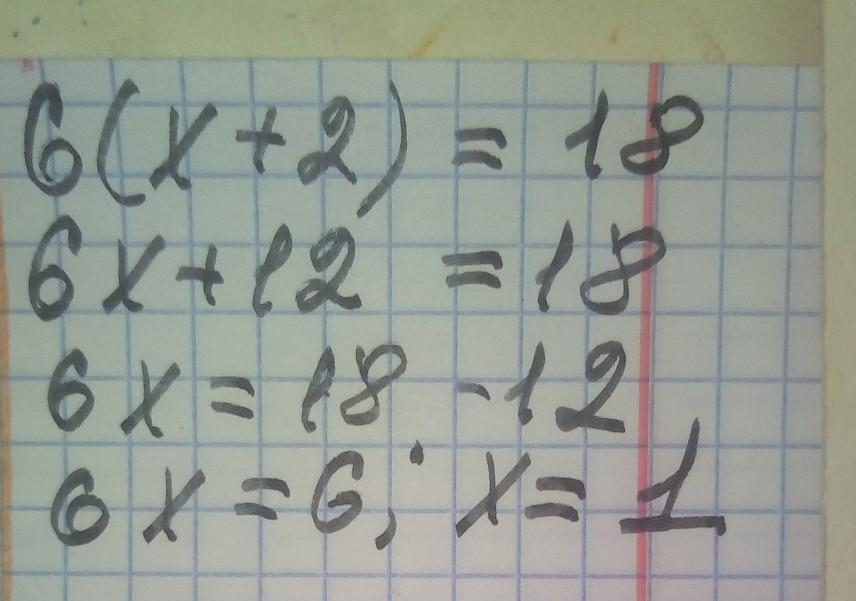 6(x+2) = 18
6x+12 = 18
6x = 18 -12
6x = 6; x = 1